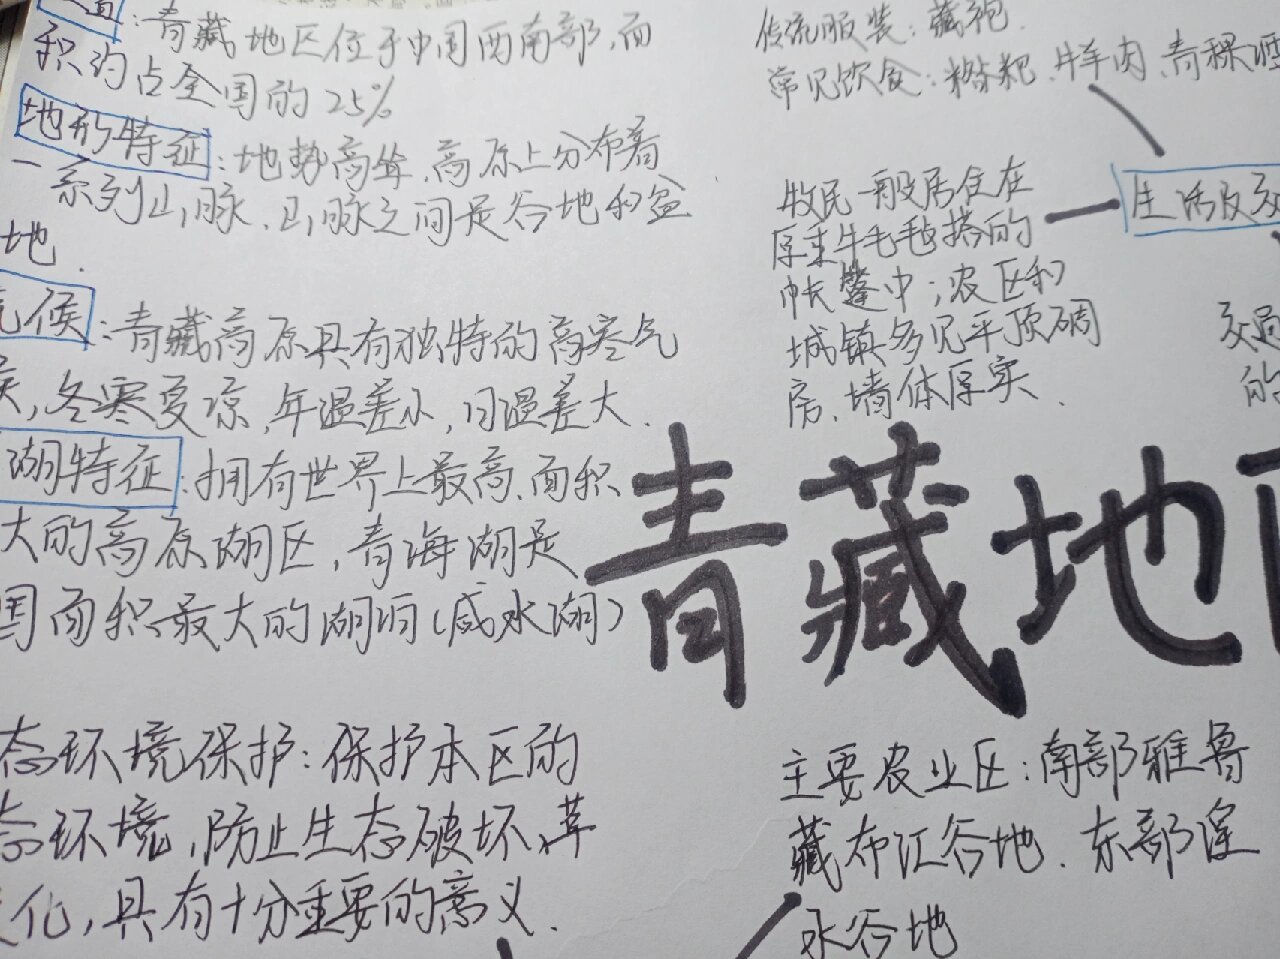 置:青藏地区位于中国西南部,面
积约占全国的25%
地形特征:地势高耸,高原上分布着
一系列山脉、山脉之间是谷地和盆
地.
气候:青藏高原具有独特的高寒气
候,冬寒夏凉,年温差小,日温差大.
湖特征:拥有世界上最高、面积
大的高原湖区,青海湖是
国面积最大的湖泊(咸水湖)
态环境保护:保护本区的
态环境,防止生态破坏、草
化,具有十分重要的意义.
传统服装:藏袍.
常见饮食:糌粑、牛羊肉、青稞酒
牧民一般居住在
厚重牛毛毡搭的
帐篷中;农区和
城镇多见平顶碉
房,墙体厚实.
生活及交
的
青藏地
主要农业区:南部雅鲁
藏布江谷地、东部湟
水谷地